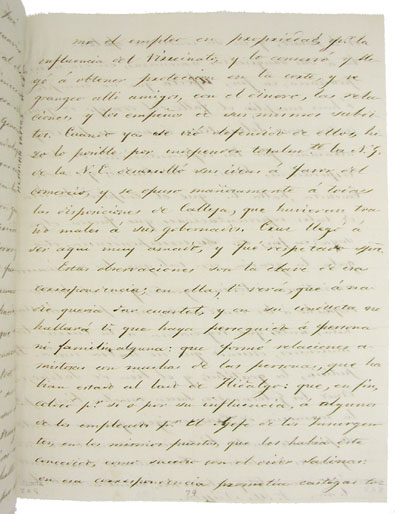 mo el empleo en propiedad, pr. la
influencia del Virreinato, y lo conservó, y lle-
gó á obtener proteccion en la corte, y se
grangeó alli amigos, con el dinero, sus rela-
ciones, y los empeños de sus mismos subdi-
tos. Cuando ya se vió defendido de ellos, hi-
zo lo posible por independer la N. G.
de la N. E. desarrolló sus ideas á favor del
comercio, y se opuso mañosamente á todas
las disposiciones de Calleja, que huvieran trai-
do males á sus gobernados. Cruz llegó á
ser aqui muy amado, y fué respetado
Estas observaciones son la clave de esa
correspondencia: en ella, U. verá que á na-
die queria dar cuartel, y en su conducta no
hallará U. que haya perseguido á persona
ni familia alguna: que formó relaciones a-
mistosas con muchas de las personas, que ha-
bian estado al lado de Hidalgo: que, en fin,
colocó pr. si ó por su influencia, á algunos
de los empleados pr. el Gefe de los Insurgen-
tes, en los mismos puestos, que les habia este
conferido, como sucedió con el oidor Salinas:
en esa correspondencia permitia castigar to